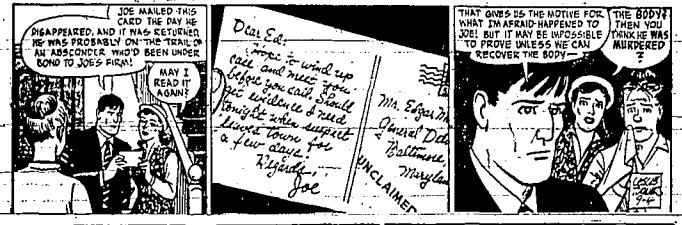 JOE MAILED THIS
CARD THE DAY HE
DISAPPEARED, AND IT WAS RETURNED.
HE WAS PROBABLY ON THE TRAIL OF
AN ABSCONDER WHO'D BEEN UNDER
BOND TO JOE'S FIRM!
MAY I
READ IT
AGAIN?
Dear Ed:
Hope to wind up
case and meet you
before you sail. Should
get evidence I need
tonight when suspect
leaves town for
a few days.
Regards,
Joe
Mr. Edgar
General
Baltimore,
Maryland
UNCLAIMED
THAT GIVES US THE MOTIVE FOR
WHAT I'M AFRAID HAPPENED TO
JOE! BUT IT MAY BE IMPOSSIBLE
TO PROVE UNLESS WE CAN
RECOVER THE BODY—
THE BODY?
THEN YOU
THINK HE WAS
MURDERED
?
9-4